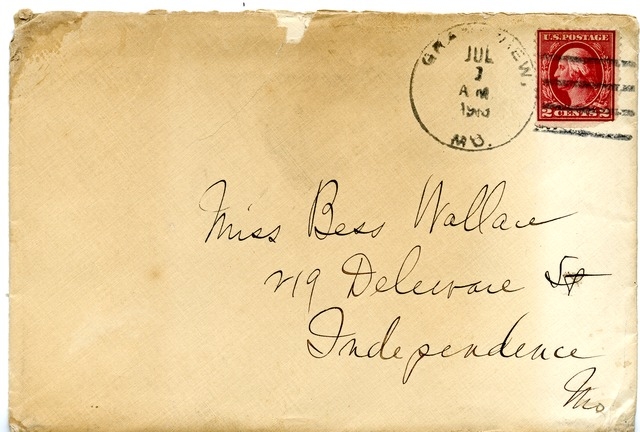 GRANDVIEW,
JUL
1
A M
MO.
U.S. POSTAGE
2 CENTS 2
Miss Bess Wallace
219 Deleware St
Independence
Mo